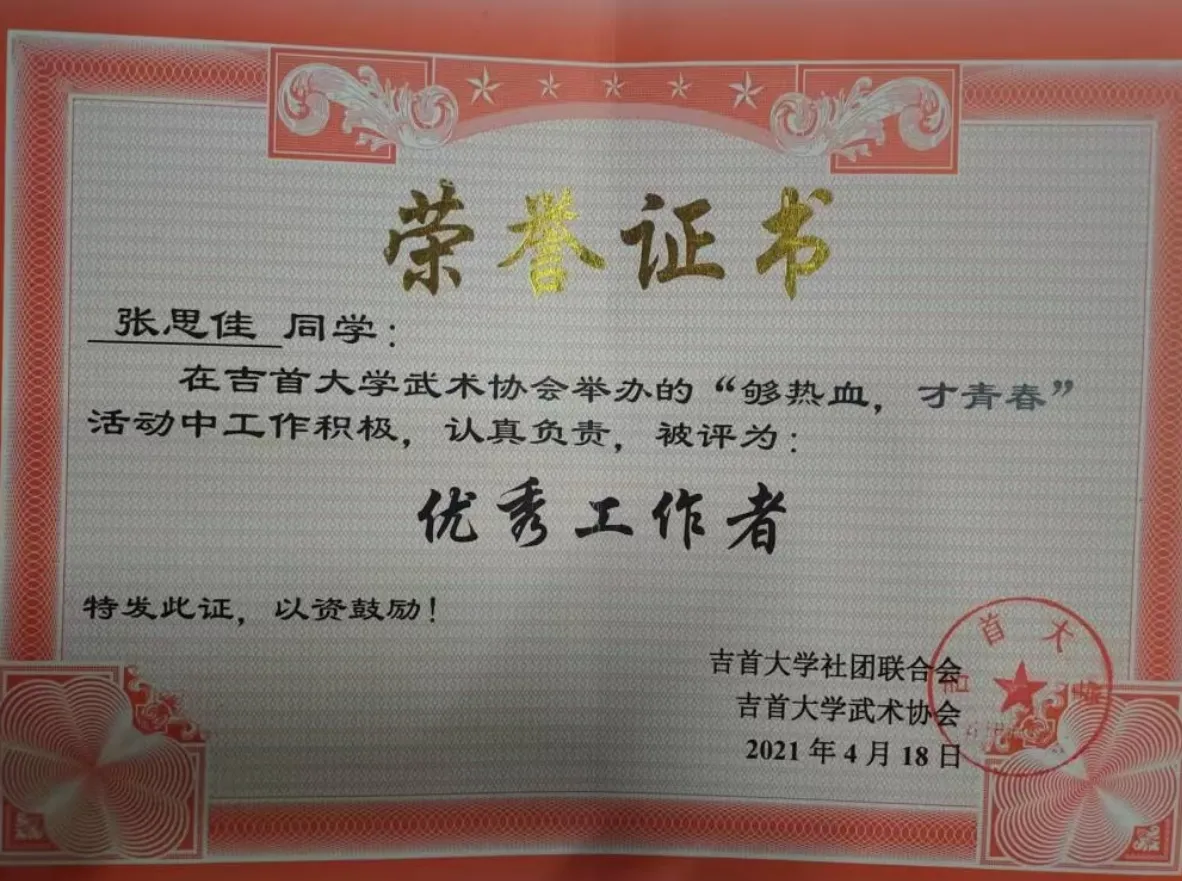 荣誉证书
张思佳 同学：
在吉首大学武术协会举办的“够热血，才青春”
活动中工作积极，认真负责，被评为：
优秀工作者
特发此证，以资鼓励！
吉首大学社团联合会
吉首大学武术协会
2021 年 4 月 18 日
吉首大学